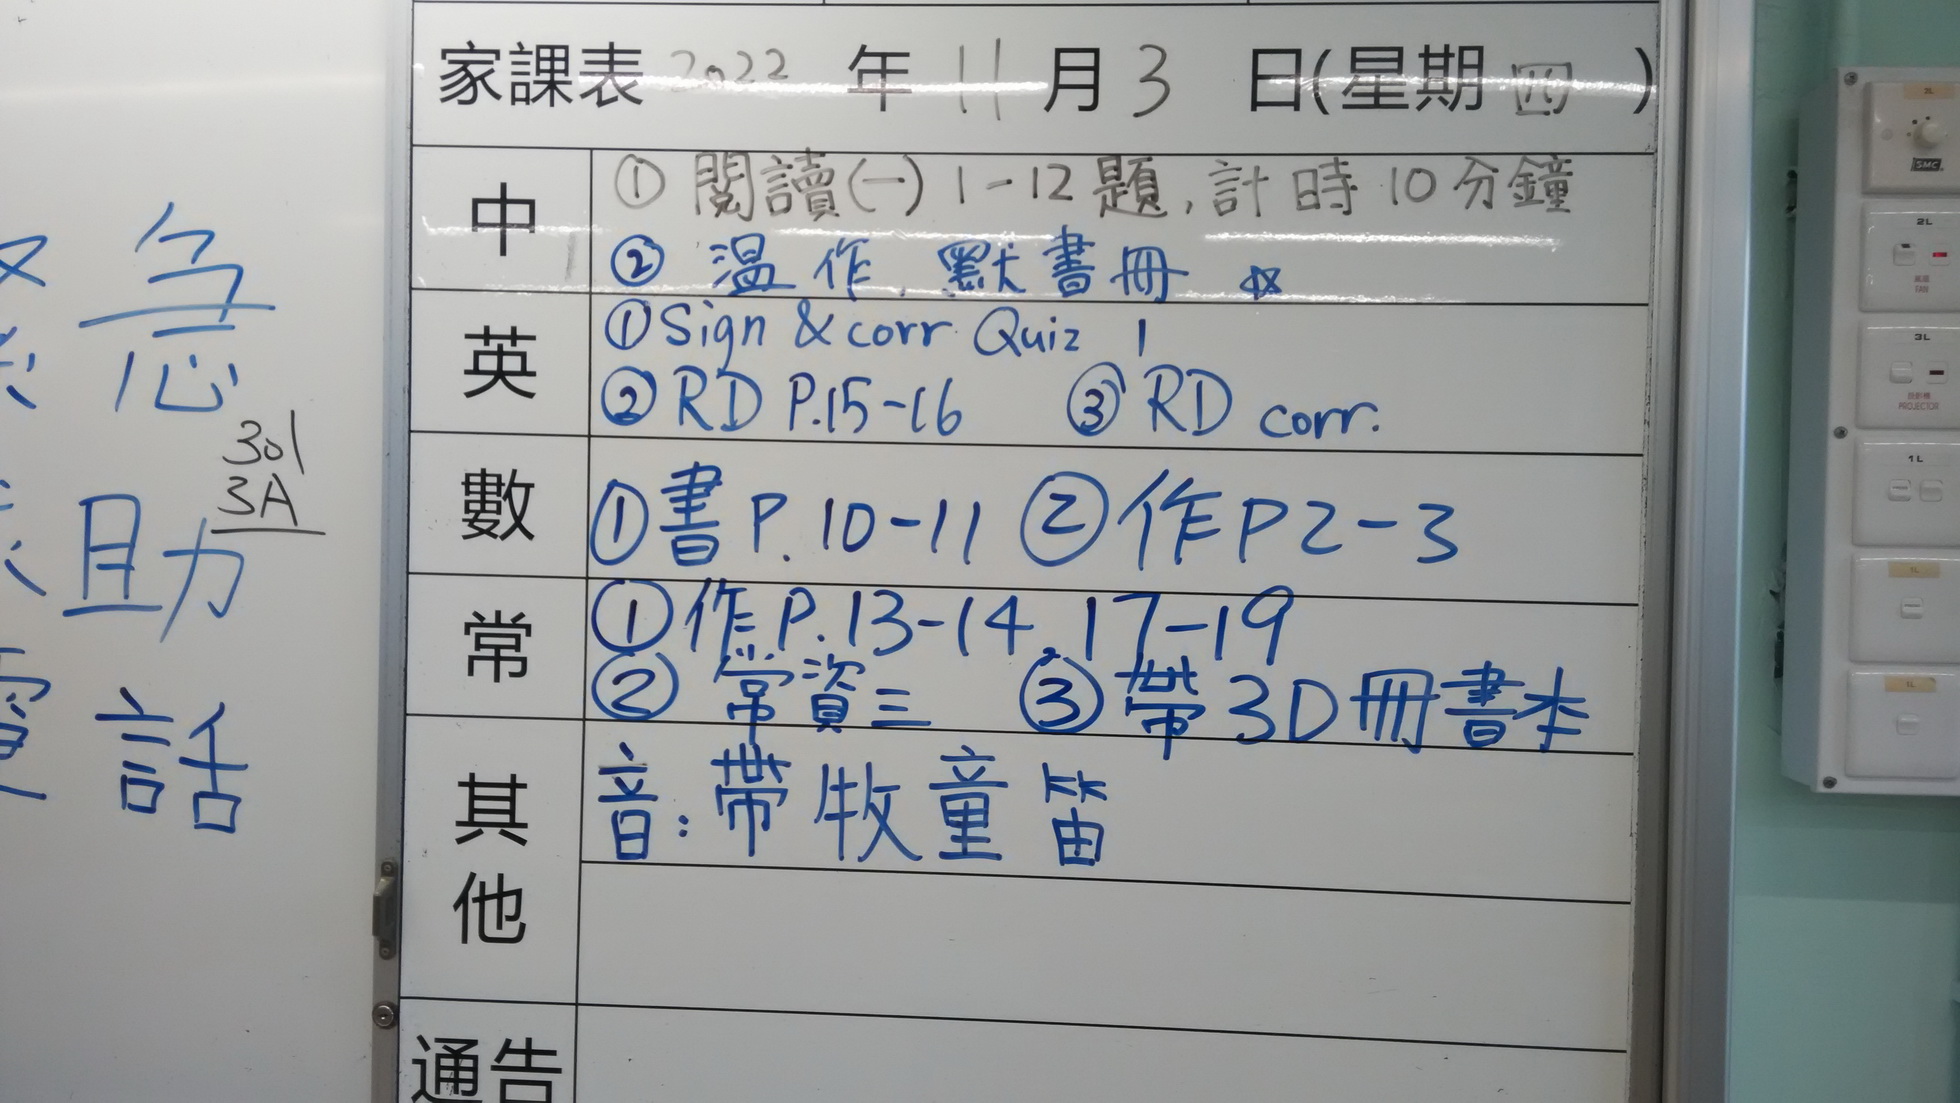 家課表 2022 年 11 月 3 日(星期四)
中
① 閱讀(一) 1-12題,計時10分鐘
② 温作,默書冊 ☆
英
① Sign & corr. Quiz 1
② RD P.15-16 ③ RD corr.
數
① 書 P.10-11 ② 作 P2-3
常
① 作 P.13-14,17-19
② 常資三 ③ 帶3D冊書本
其他
音:帶牧童笛
通告
急
助
話
301
3A
2L
FAN
3L
投影機
PROJECTOR
1L
SMC